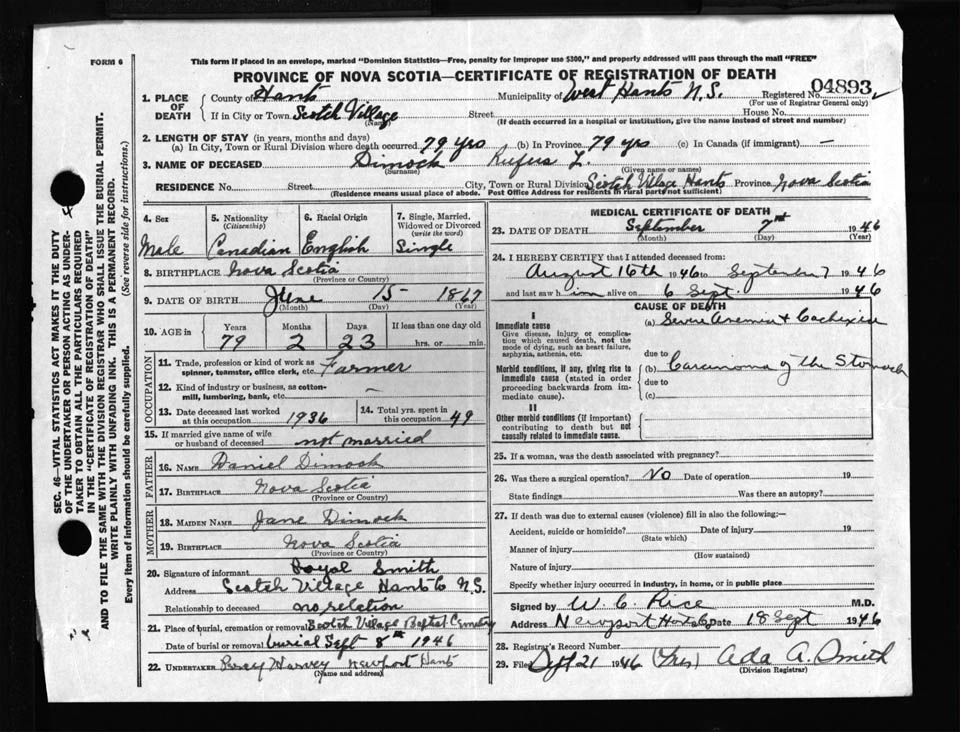 FORM 6
This form if placed in an envelope, marked "Dominion Statistics—Free, penalty for improper use $300," and properly addressed will pass through the mail "FREE"
PROVINCE OF NOVA SCOTIA—CERTIFICATE OF REGISTRATION OF DEATH
1. PLACE OF DEATH { County of Hants Municipality of West Hants N.S. Registered No. 04893
(For use of Registrar General only)
If in City or Town Scotch Village Street House No.
(Name) (If death occurred in a hospital or institution, give the name instead of street and number)
2. LENGTH OF STAY (in years, months and days)
(a) In City, Town or Rural Division where death occurred 79 yrs (b) In Province 79 yrs (c) In Canada (if immigrant) —
3. NAME OF DECEASED Dimock Rufus L.
(Surname) (Given name or names)
RESIDENCE No. Street City, Town or Rural Division Scotch Village Hants Province Nova Scotia
(Residence means usual place of abode. Post Office Address for residents in rural parts not sufficient)
SEC. 46—VITAL STATISTICS ACT MAKES IT THE DUTY
OF THE UNDERTAKER OR PERSON ACTING AS UNDER-
TAKER TO OBTAIN ALL THE PARTICULARS REQUIRED
IN THE "CERTIFICATE OF REGISTRATION OF DEATH"
AND TO FILE THE SAME WITH THE DIVISION REGISTRAR WHO SHALL ISSUE THE BURIAL PERMIT.
WRITE PLAINLY WITH UNFADING INK. THIS IS A PERMANENT RECORD.
Every item of information should be carefully supplied. (See reverse side for instructions.)
4. Sex
Male
5. Nationality
(Citizenship)
Canadian
6. Racial Origin
English
7. Single, Married,
Widowed or Divorced
(write the word)
Single
8. BIRTHPLACE Nova Scotia
(Province or Country)
9. DATE OF BIRTH June 15 1867
(Month) (Day) (Year)
10. AGE in Years Months Days If less than one day old
79 2 23 hrs. or min.
OCCUPATION
11. Trade, profession or kind of work as
spinner, teamster, office clerk, etc. Farmer
12. Kind of industry or business, as cotton-
mill, lumbering, bank, etc. —
13. Date deceased last worked
at this occupation 1936
14. Total yrs. spent in
this occupation 49
15. If married give name of wife
or husband of deceased not married
FATHER
16. NAME Daniel Dimock
17. BIRTHPLACE Nova Scotia
(Province or Country)
MOTHER
18. MAIDEN NAME Jane Dimock
19. BIRTHPLACE Nova Scotia
(Province or Country)
20. Signature of informant Loyal Smith
Address Scotch Village Hants Co N.S.
Relationship to deceased no relation
21. Place of burial, cremation or removal Scotch Village Baptist Cemetery
Date of burial or removal burial Sept 8th 1946
22. UNDERTAKER Percy Harvey Newport Hants
(Name and address)
MEDICAL CERTIFICATE OF DEATH
23. DATE OF DEATH September 7 1946
(Month) (Day) (Year)
24. I HEREBY CERTIFY that I attended deceased from:
August 16th 1946 to September 7 1946
and last saw him alive on 6 Sept. 1946
CAUSE OF DEATH
I
Immediate cause (a) Severe Anemia & Cachexia
Give disease, injury or complica-
tion which caused death, not the
mode of dying, such as heart failure,
asphyxia, asthenia, etc.
due to
Morbid conditions, if any, giving rise to
immediate cause (stated in order
proceeding backwards from im-
mediate cause).
(b) Carcinoma of the Stomach
due to
(c)
II
Other morbid conditions (if important)
contributing to death but not
causally related to immediate cause.
25. If a woman, was the death associated with pregnancy?
26. Was there a surgical operation? No Date of operation 19
State findings Was there an autopsy?
27. If death was due to external causes (violence) fill in also the following:—
Accident, suicide or homicide? Date of injury 19
(State which)
Manner of injury
(How sustained)
Nature of injury
Specify whether injury occurred in industry, in home, or in public place
Signed by W. C. Rice M.D.
Address Newport Hants Co Date 18 Sept 1946
28. Registrar's Record Number
29. Filed Sept 21 1946 (Mrs) Ada A. Smith
(Division Registrar)